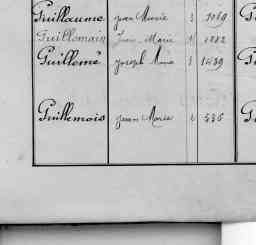 Guillaume Jean Marie 1069
Guillomain Jean Marie 1882
Guillemé Joseph Marie 1489
Guillemois Jean Marie 536